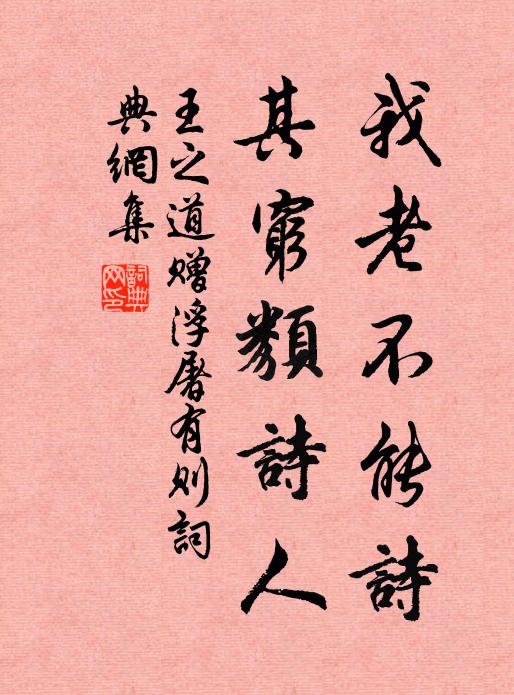 我老不能詩
其窮類詩人
王之道贈浮屠有则詞
典網集
詞典網印